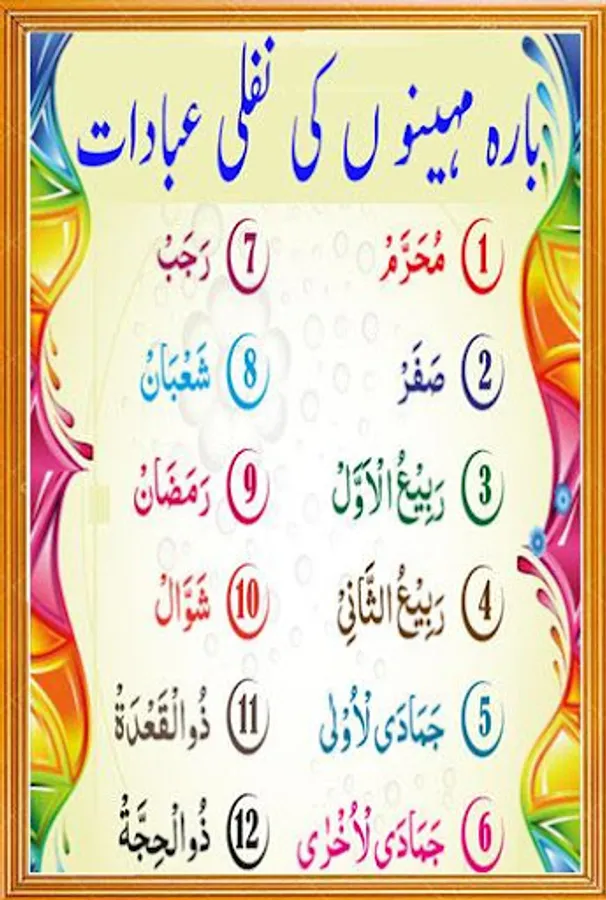 بارہ مہینوں کی نفلی عبادات
1 مُحَرَّمْ
2 صَفَرْ
3 رَبِیْعُ الْاَوَّلْ
4 رَبِیْعُ الثَّانِیْ
5 جَمَادَی لْاُوْلٰی
6 جَمَادَی لْاُخْرٰی
7 رَجَبْ
8 شَعْبَانْ
9 رَمَضَانْ
10 شَوَّالْ
11 ذُوالْقَعْدَةْ
12 ذُوالْحِجَّةْ